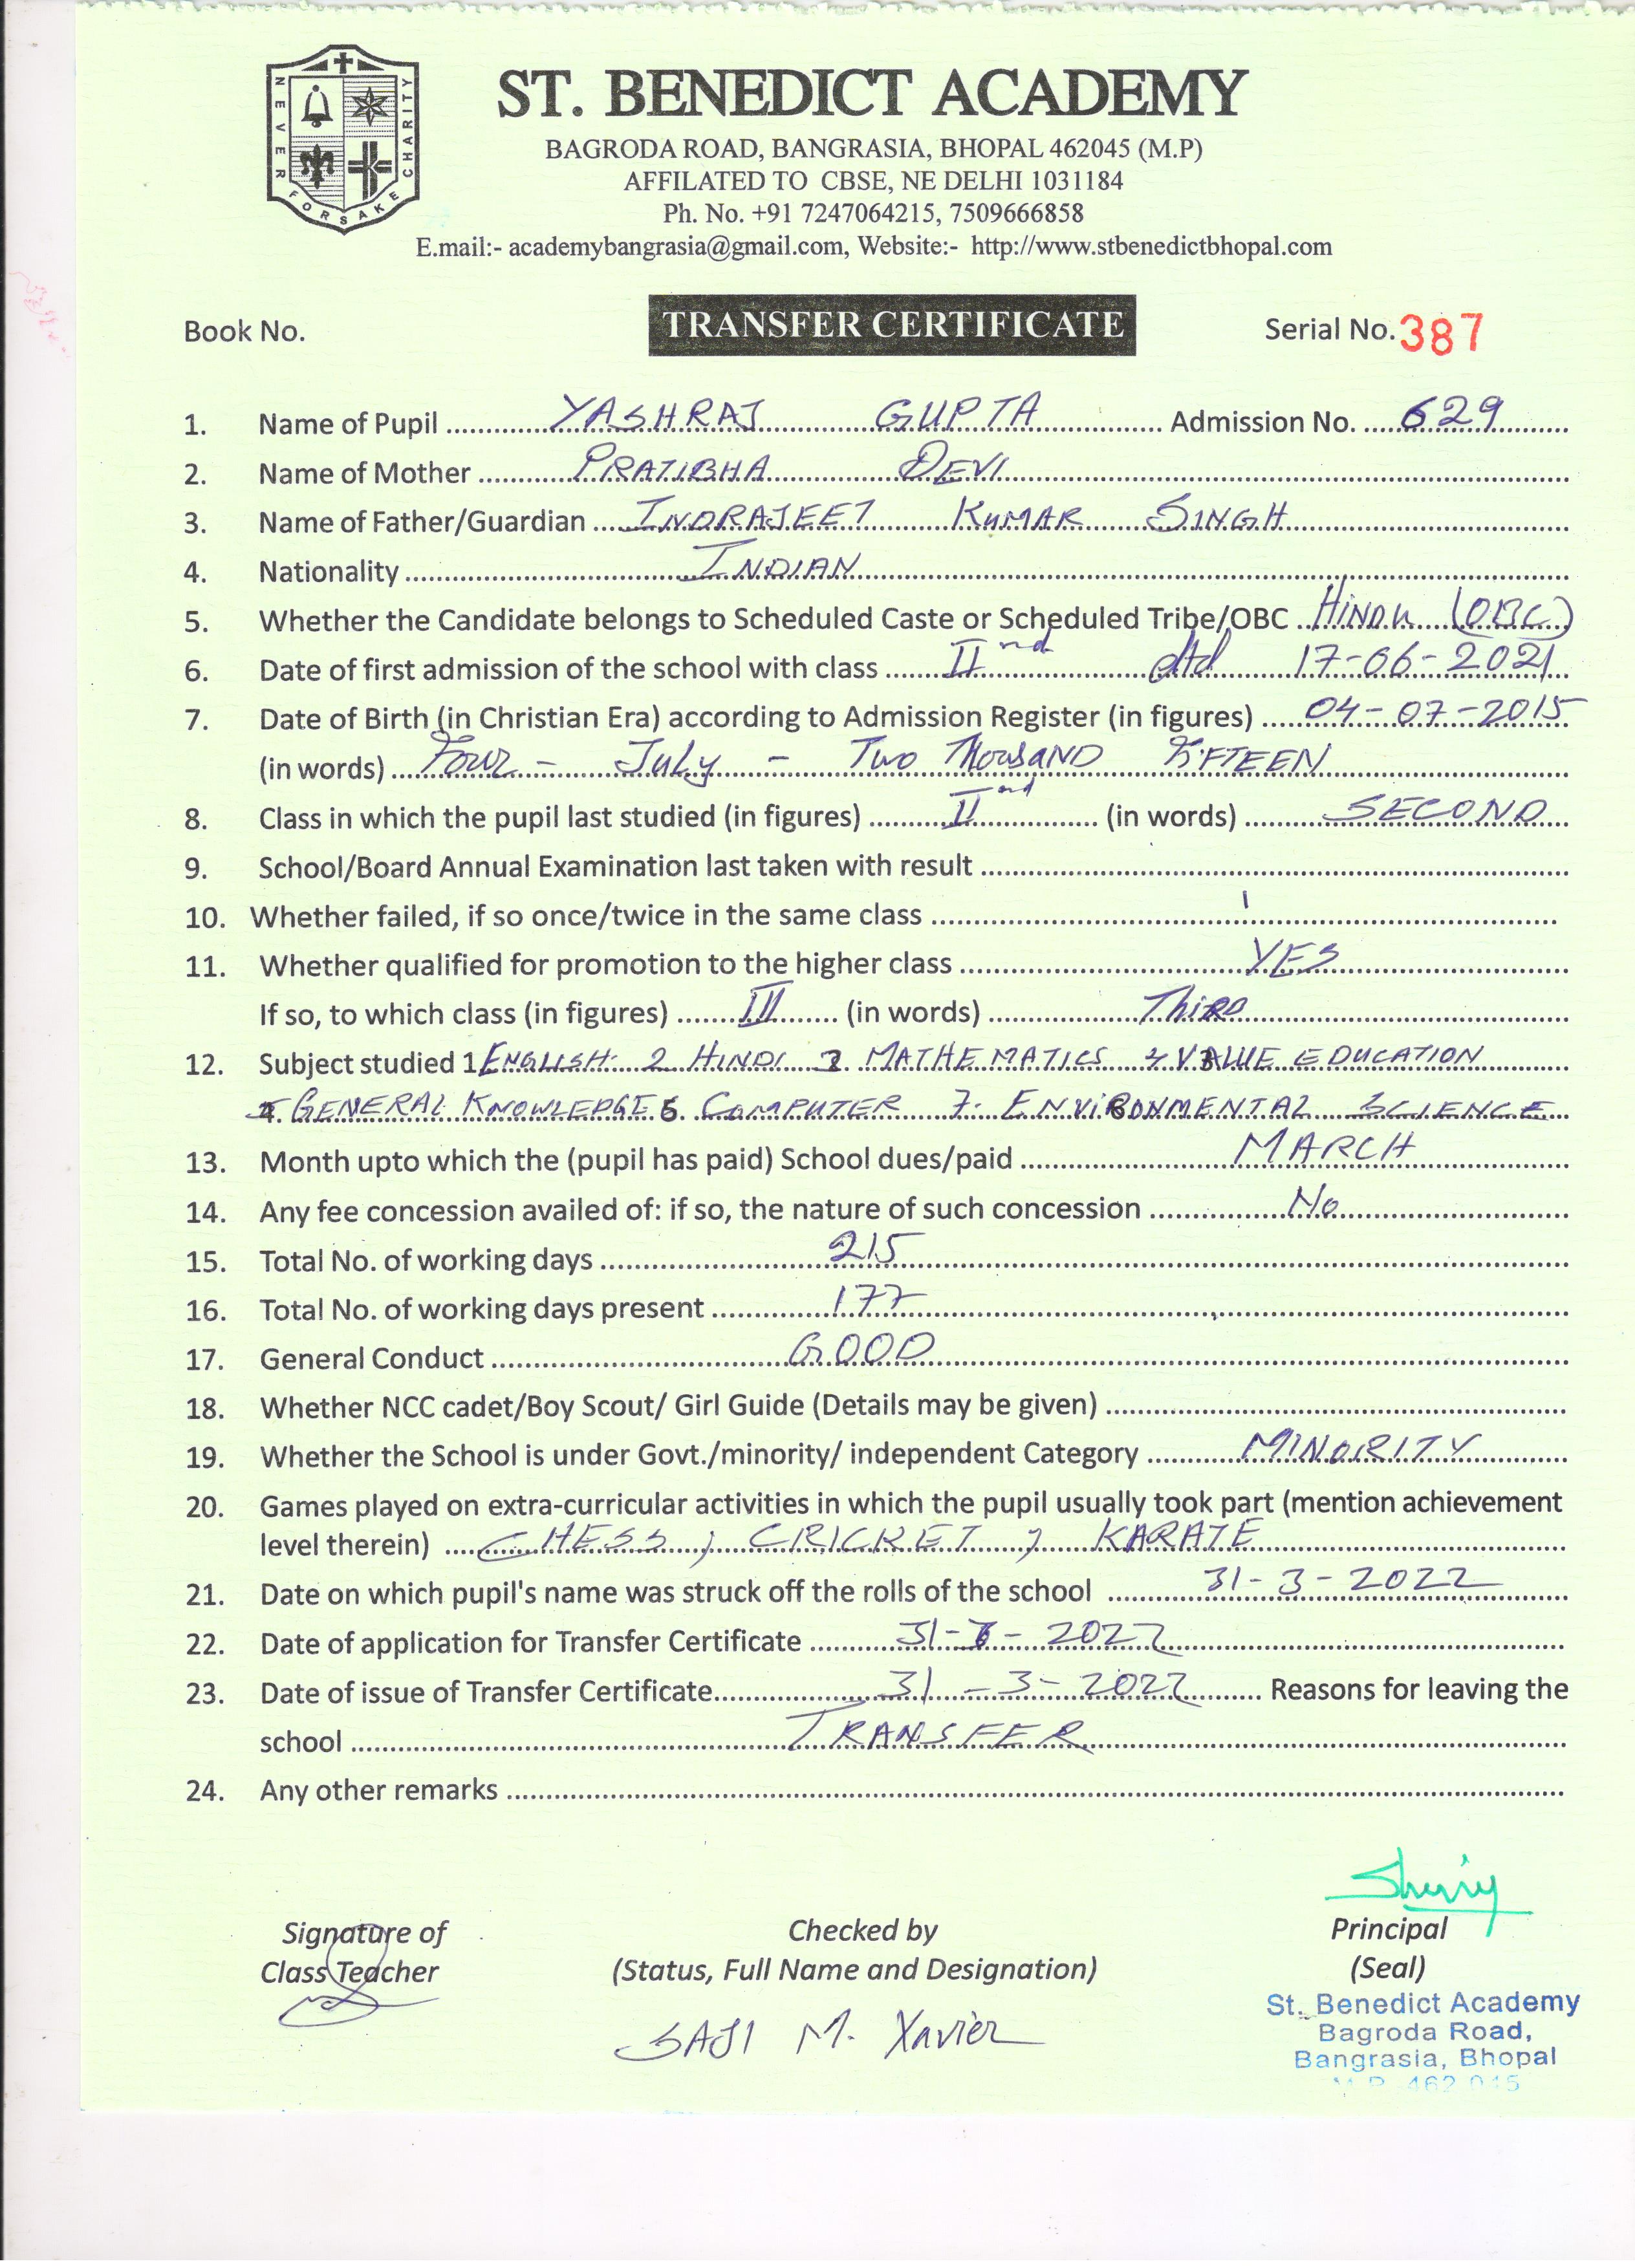 NEVER FORSAKE CHARITY
ST. BENEDICT ACADEMY
BAGRODA ROAD, BANGRASIA, BHOPAL 462045 (M.P)
AFFILATED TO CBSE, NE DELHI 1031184
Ph. No. +91 7247064215, 7509666858
E.mail:- academybangrasia@gmail.com, Website:- http://www.stbenedictbhopal.com
Book No. TRANSFER CERTIFICATE Serial No. 387
1. Name of Pupil YASHRAJ GUPTA Admission No. 629
2. Name of Mother PRATIBHA DEVI
3. Name of Father/Guardian INDRAJEET KUMAR SINGH
4. Nationality INDIAN
5. Whether the Candidate belongs to Scheduled Caste or Scheduled Tribe/OBC HINDU (OBC)
6. Date of first admission of the school with class IInd dtd 17-06-2021
7. Date of Birth (in Christian Era) according to Admission Register (in figures) 04-07-2015
(in words) Four - July - Two Thousand FIFTEEN
8. Class in which the pupil last studied (in figures) IInd (in words) SECOND
9. School/Board Annual Examination last taken with result
10. Whether failed, if so once/twice in the same class
11. Whether qualified for promotion to the higher class YES
If so, to which class (in figures) III (in words) THIRD
12. Subject studied 1 ENGLISH 2 HINDI MATHEMATICS VALUE EDUCATION
GENERAL KNOWLEDGE COMPUTER 7. ENVIRONMENTAL SCIENCE
13. Month upto which the (pupil has paid) School dues/paid MARCH
14. Any fee concession availed of: if so, the nature of such concession No
15. Total No. of working days 215
16. Total No. of working days present 177
17. General Conduct GOOD
18. Whether NCC cadet/Boy Scout/ Girl Guide (Details may be given)
19. Whether the School is under Govt./minority/ independent Category MINORITY
20. Games played on extra-curricular activities in which the pupil usually took part (mention achievement
level therein) CHESS, CRICKET, KARATE
21. Date on which pupil's name was struck off the rolls of the school 31-3-2022
22. Date of application for Transfer Certificate 31-3-2022
23. Date of issue of Transfer Certificate 31-3-2022 Reasons for leaving the
school TRANSFER
24. Any other remarks
Signature of Checked by Principal
Class Teacher (Status, Full Name and Designation) (Seal)
SAJI M. Xavier
St. Benedict Academy
Bagroda Road,
Bangrasia, Bhopal
M.P. 462 045